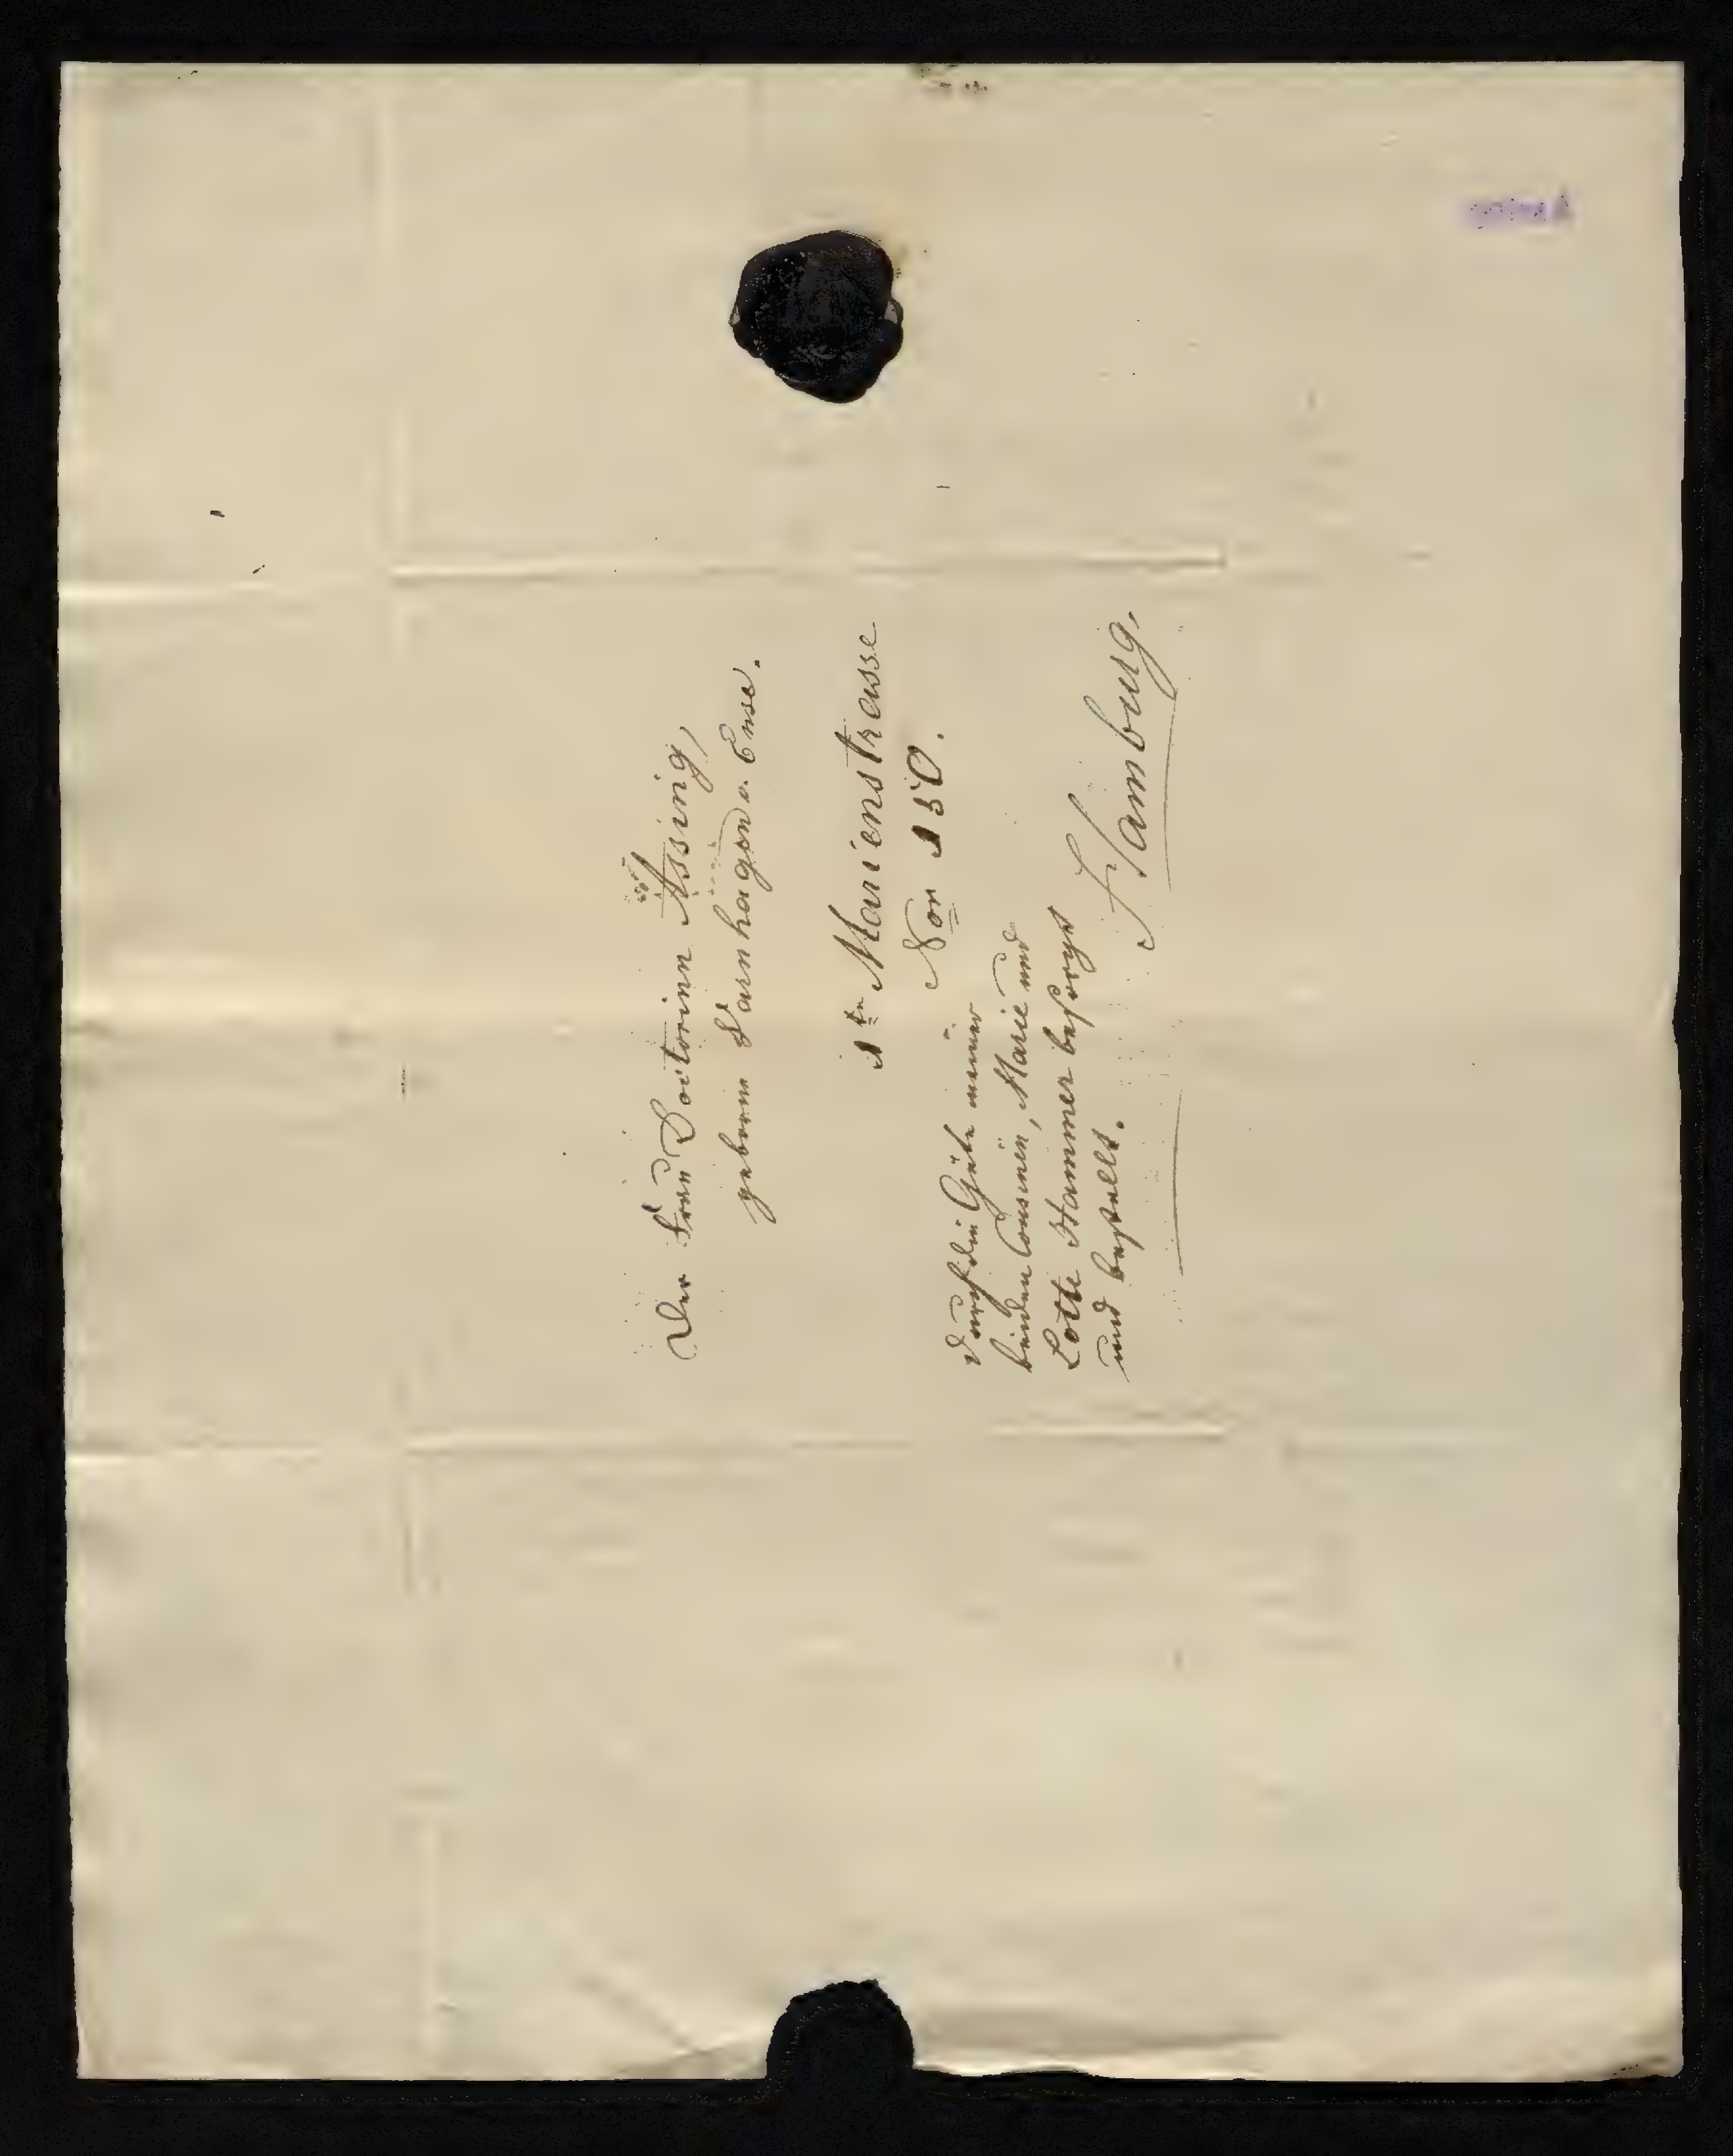 Der Frau Doctorinn Assing,
geborne Varnhagen v. Ense.
1te Marienstrasse
Nor 150.
Durch die Güte meiner
beiden Cousinen, Marie und
Lotte Hammer besorgt
und bestellt.
Hamburg.